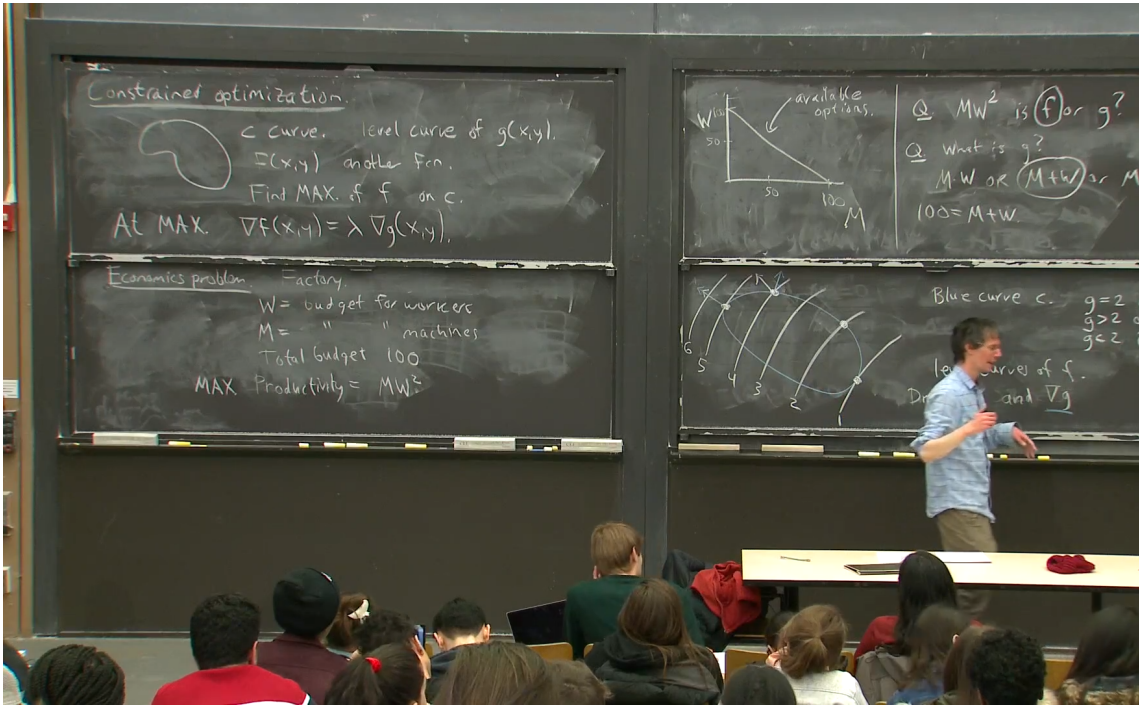 Constrained optimization.
C curve. level curve of g(x,y).
F(x,y) another fcn.
Find MAX. of f on c.
At MAX. ∇f(x,y) = λ ∇g(x,y).
Economics problem. Factory.
W = budget for workers
M = " " machines
Total budget 100
MAX Productivity = MW²
W 100
50
50
100
M
available
options.
Q MW² is f or g?
Q What is g?
M·W OR M+W or M
100 = M+W.
6
5
4
3
2
1
Blue curve c. g=2
g>2
g<2
curves of f.
and ∇g